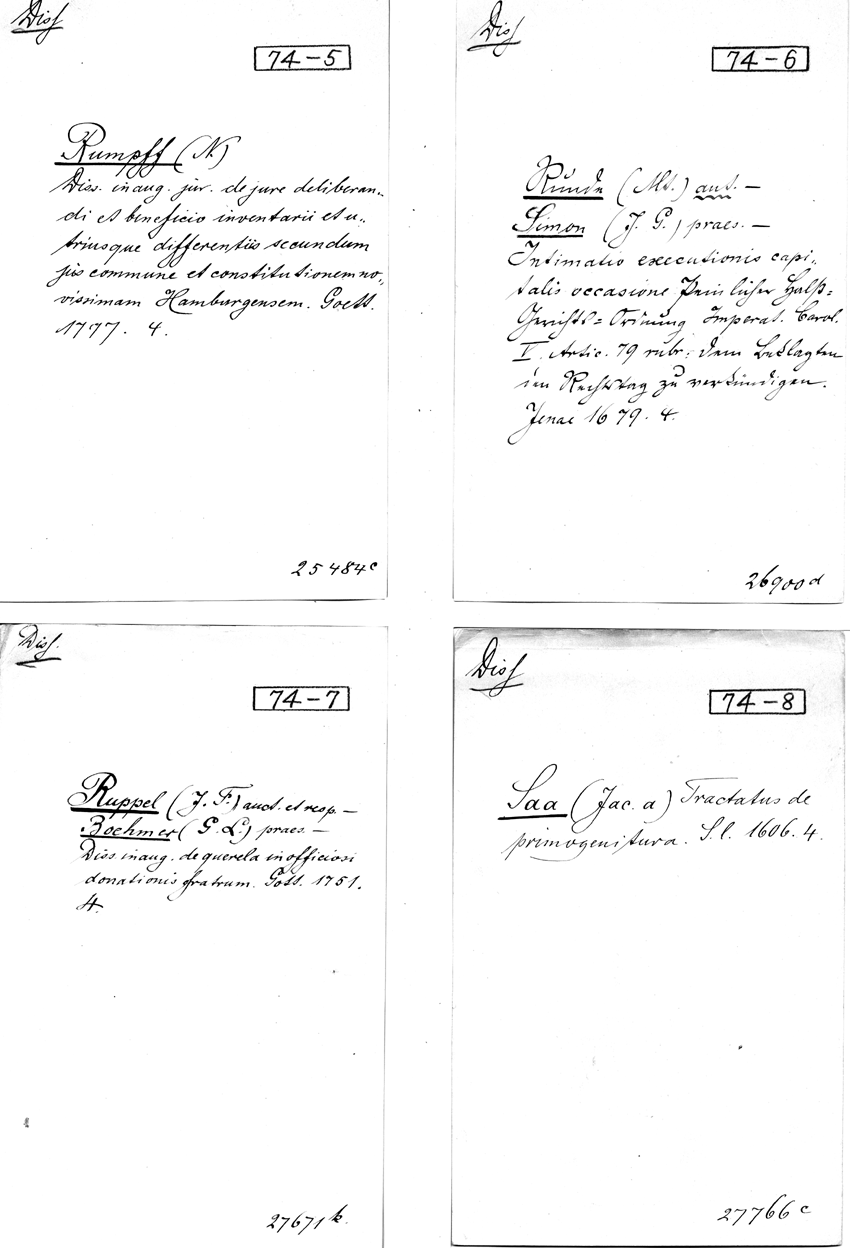 Diss
74-5
Rumpff (N.)
Diss. inaug. jur. de jure deliberan-
di et beneficio inventarii et u-
triusque differentiis secundum
jus commune et constitutionem no-
vissimam Hamburgensem. Goett.
1777. 4.
25484c
Diss
74-6
Runde (Mt.) aut. —
Simon (J. G.) praes. —
Intimatio executionis capi-
talis occasione Peinlicher Halß=
Gerichts=Ordnung Imperat. Carol.
V. Artic. 79 rubr: dem Beklagten
den Rechtstag zu verkündigen.
Jenae 1679. 4.
26900d
Diss.
74-7
Ruppel (J. F.) auct. et resp. —
Boehmer (G. L.) praes. —
Diss. inaug. de querela inofficiosi
donationis fratrum. Gött. 1751.
4.
27671k.
Diss
74-8
Saa (Jac. a) Tractatus de
primogenitura. S. l. 1606. 4.
27766c